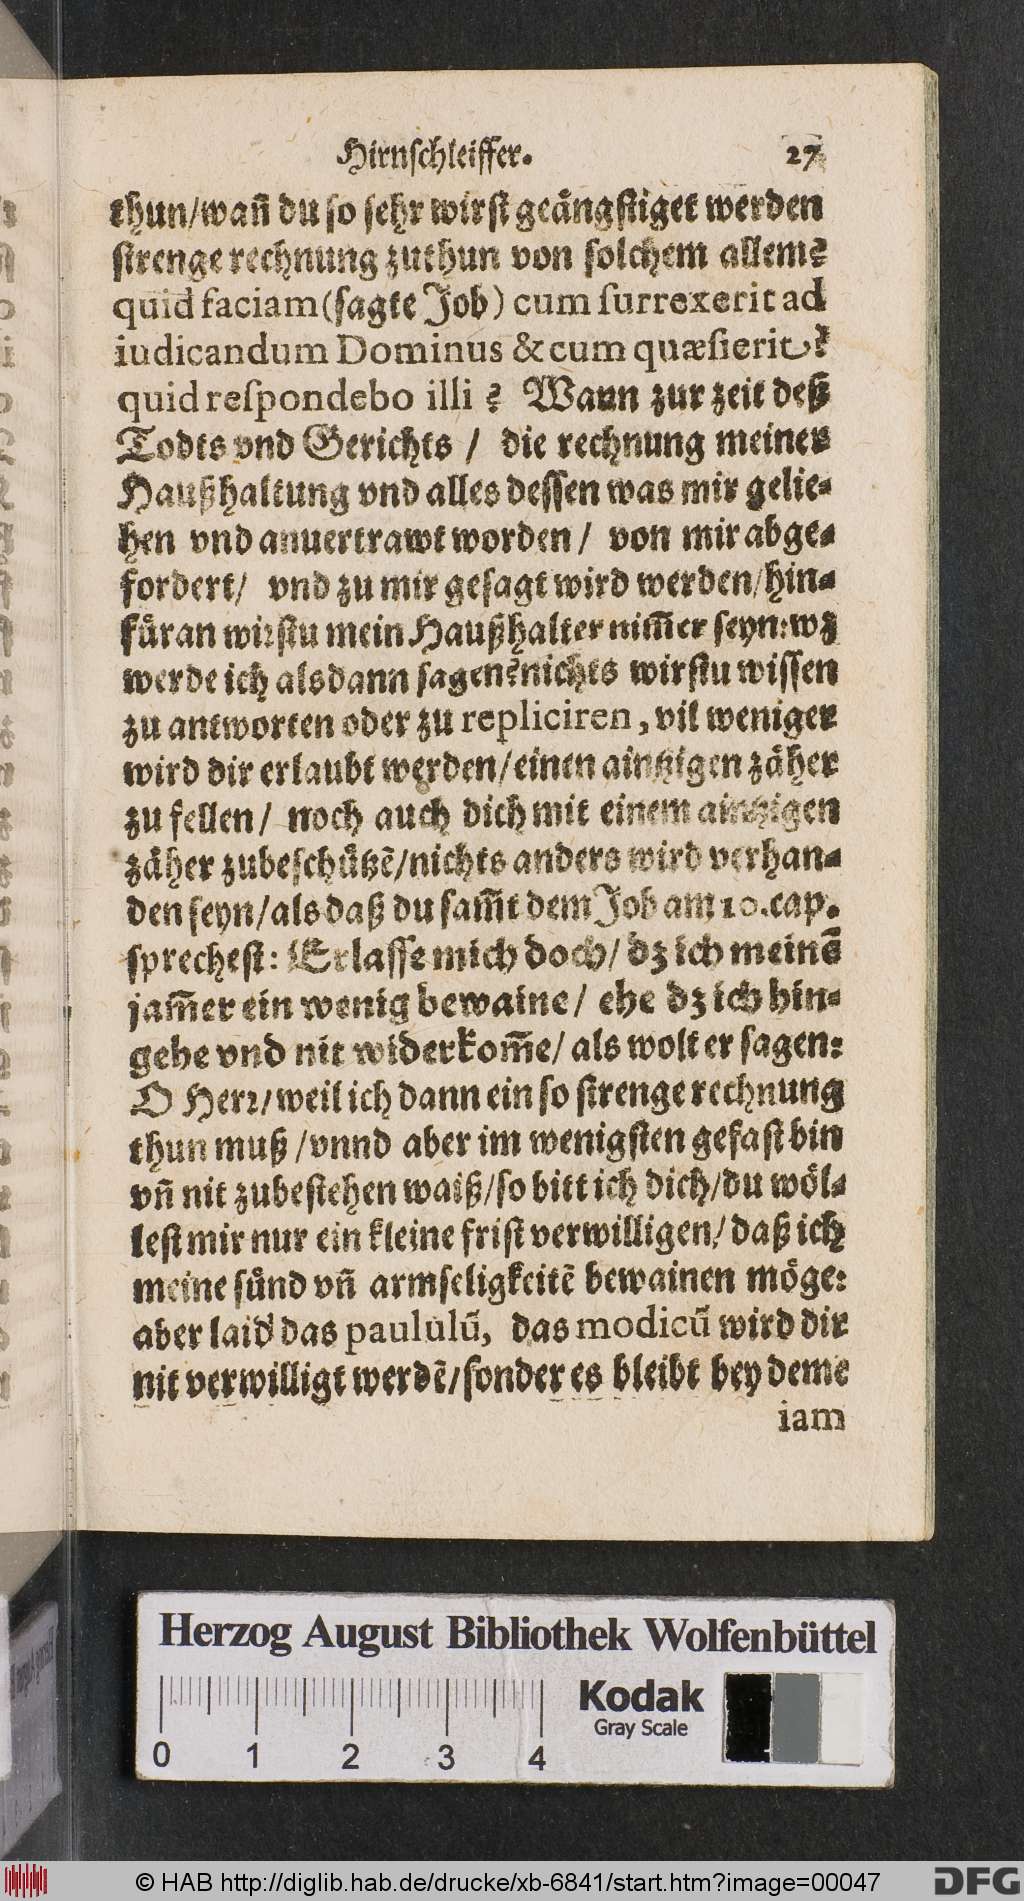 Hirnſchleiffer. 27
thun/wañ du ſo ſehr wirſt geaͤngſtiget werden
ſtrenge rechnung zuthun von ſolchem allem?
quid faciam (ſagte Job) cum ſurrexerit ad
iudicandum Dominus & cum quæſierit?
quid reſpondebo illi? Wann zur zeit deß
Todts vnd Gerichts / die rechnung meiner
Haußhaltung vnd alles deſſen was mir gelie-
hen vnd anuertrawt worden / von mir abge-
fordert / vnd zu mir geſagt wird werden/hin-
fuͤran wirſtu mein Haußhalter nim̃er ſeyn: wz
werde ich alsdann ſagen? nichts wirſtu wiſſen
zu antworten oder zu repliciren, vil weniger
wird dir erlaubt werden/einen aintzigen zaͤher
zu fellen / noch auch dich mit einem aintzigen
zaͤher zubeſchuͤtzẽ/nichts anders wird verhan-
den ſeyn/als daß du ſam̃t dem Job am 10. cap.
ſprecheſt: Erlaſſe mich doch/ dz ich meinẽ
jam̃er ein wenig bewaine / ehe dz ich hin-
gehe vnd nit widerkom̃e / als wolt er ſagen:
O Herꝛ/weil ich dann ein ſo ſtrenge rechnung
thun muß /vnnd aber im wenigſten gefaſt bin
vñ nit zubeſtehen waiß/ſo bitt ich dich/du woͤl-
leſt mir nur ein kleine friſt verwilligen/ daß ich
meine ſuͤnd vñ armſeligkeitẽ bewainen moͤge:
aber laid das paululũ, das modicũ wird dir
nit verwilligt werdẽ/ſonder es bleibt bey deme
iam
Herzog August Bibliothek Wolfenbüttel
Kodak
Gray Scale
0 1 2 3 4
© HAB http://diglib.hab.de/drucke/xb-6841/start.htm?image=00047
DFG